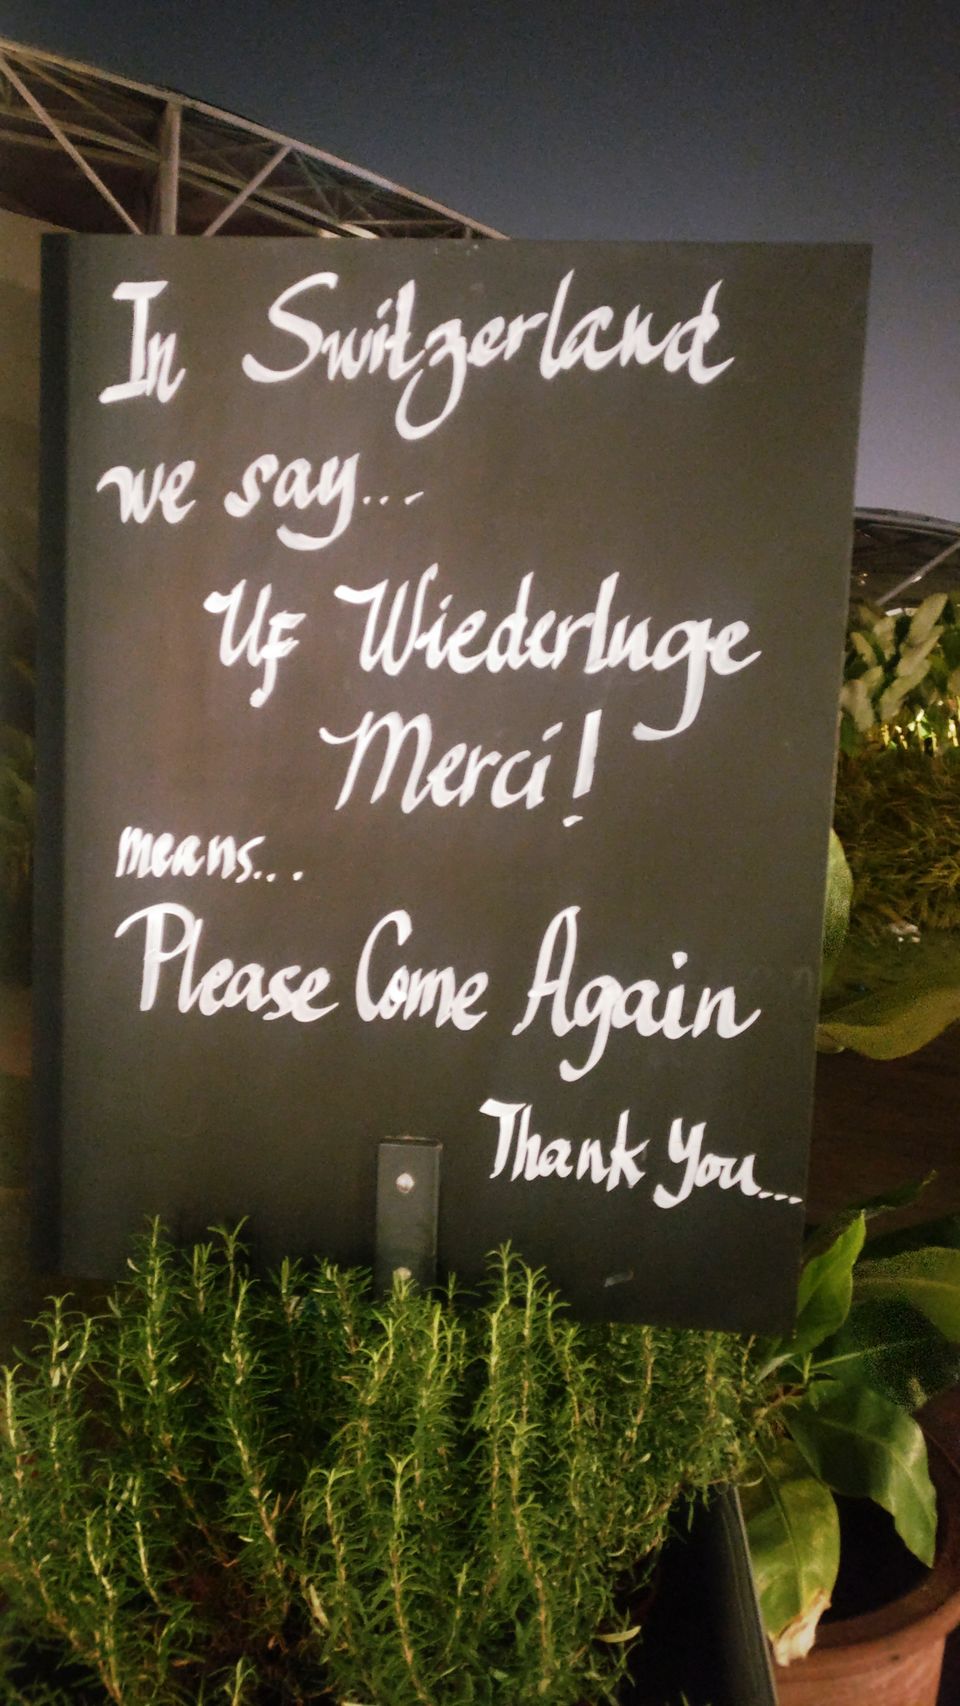 In Switzerland
we say...
Uf Wiederluge
Merci!
means...
Please Come Again
Thank You...